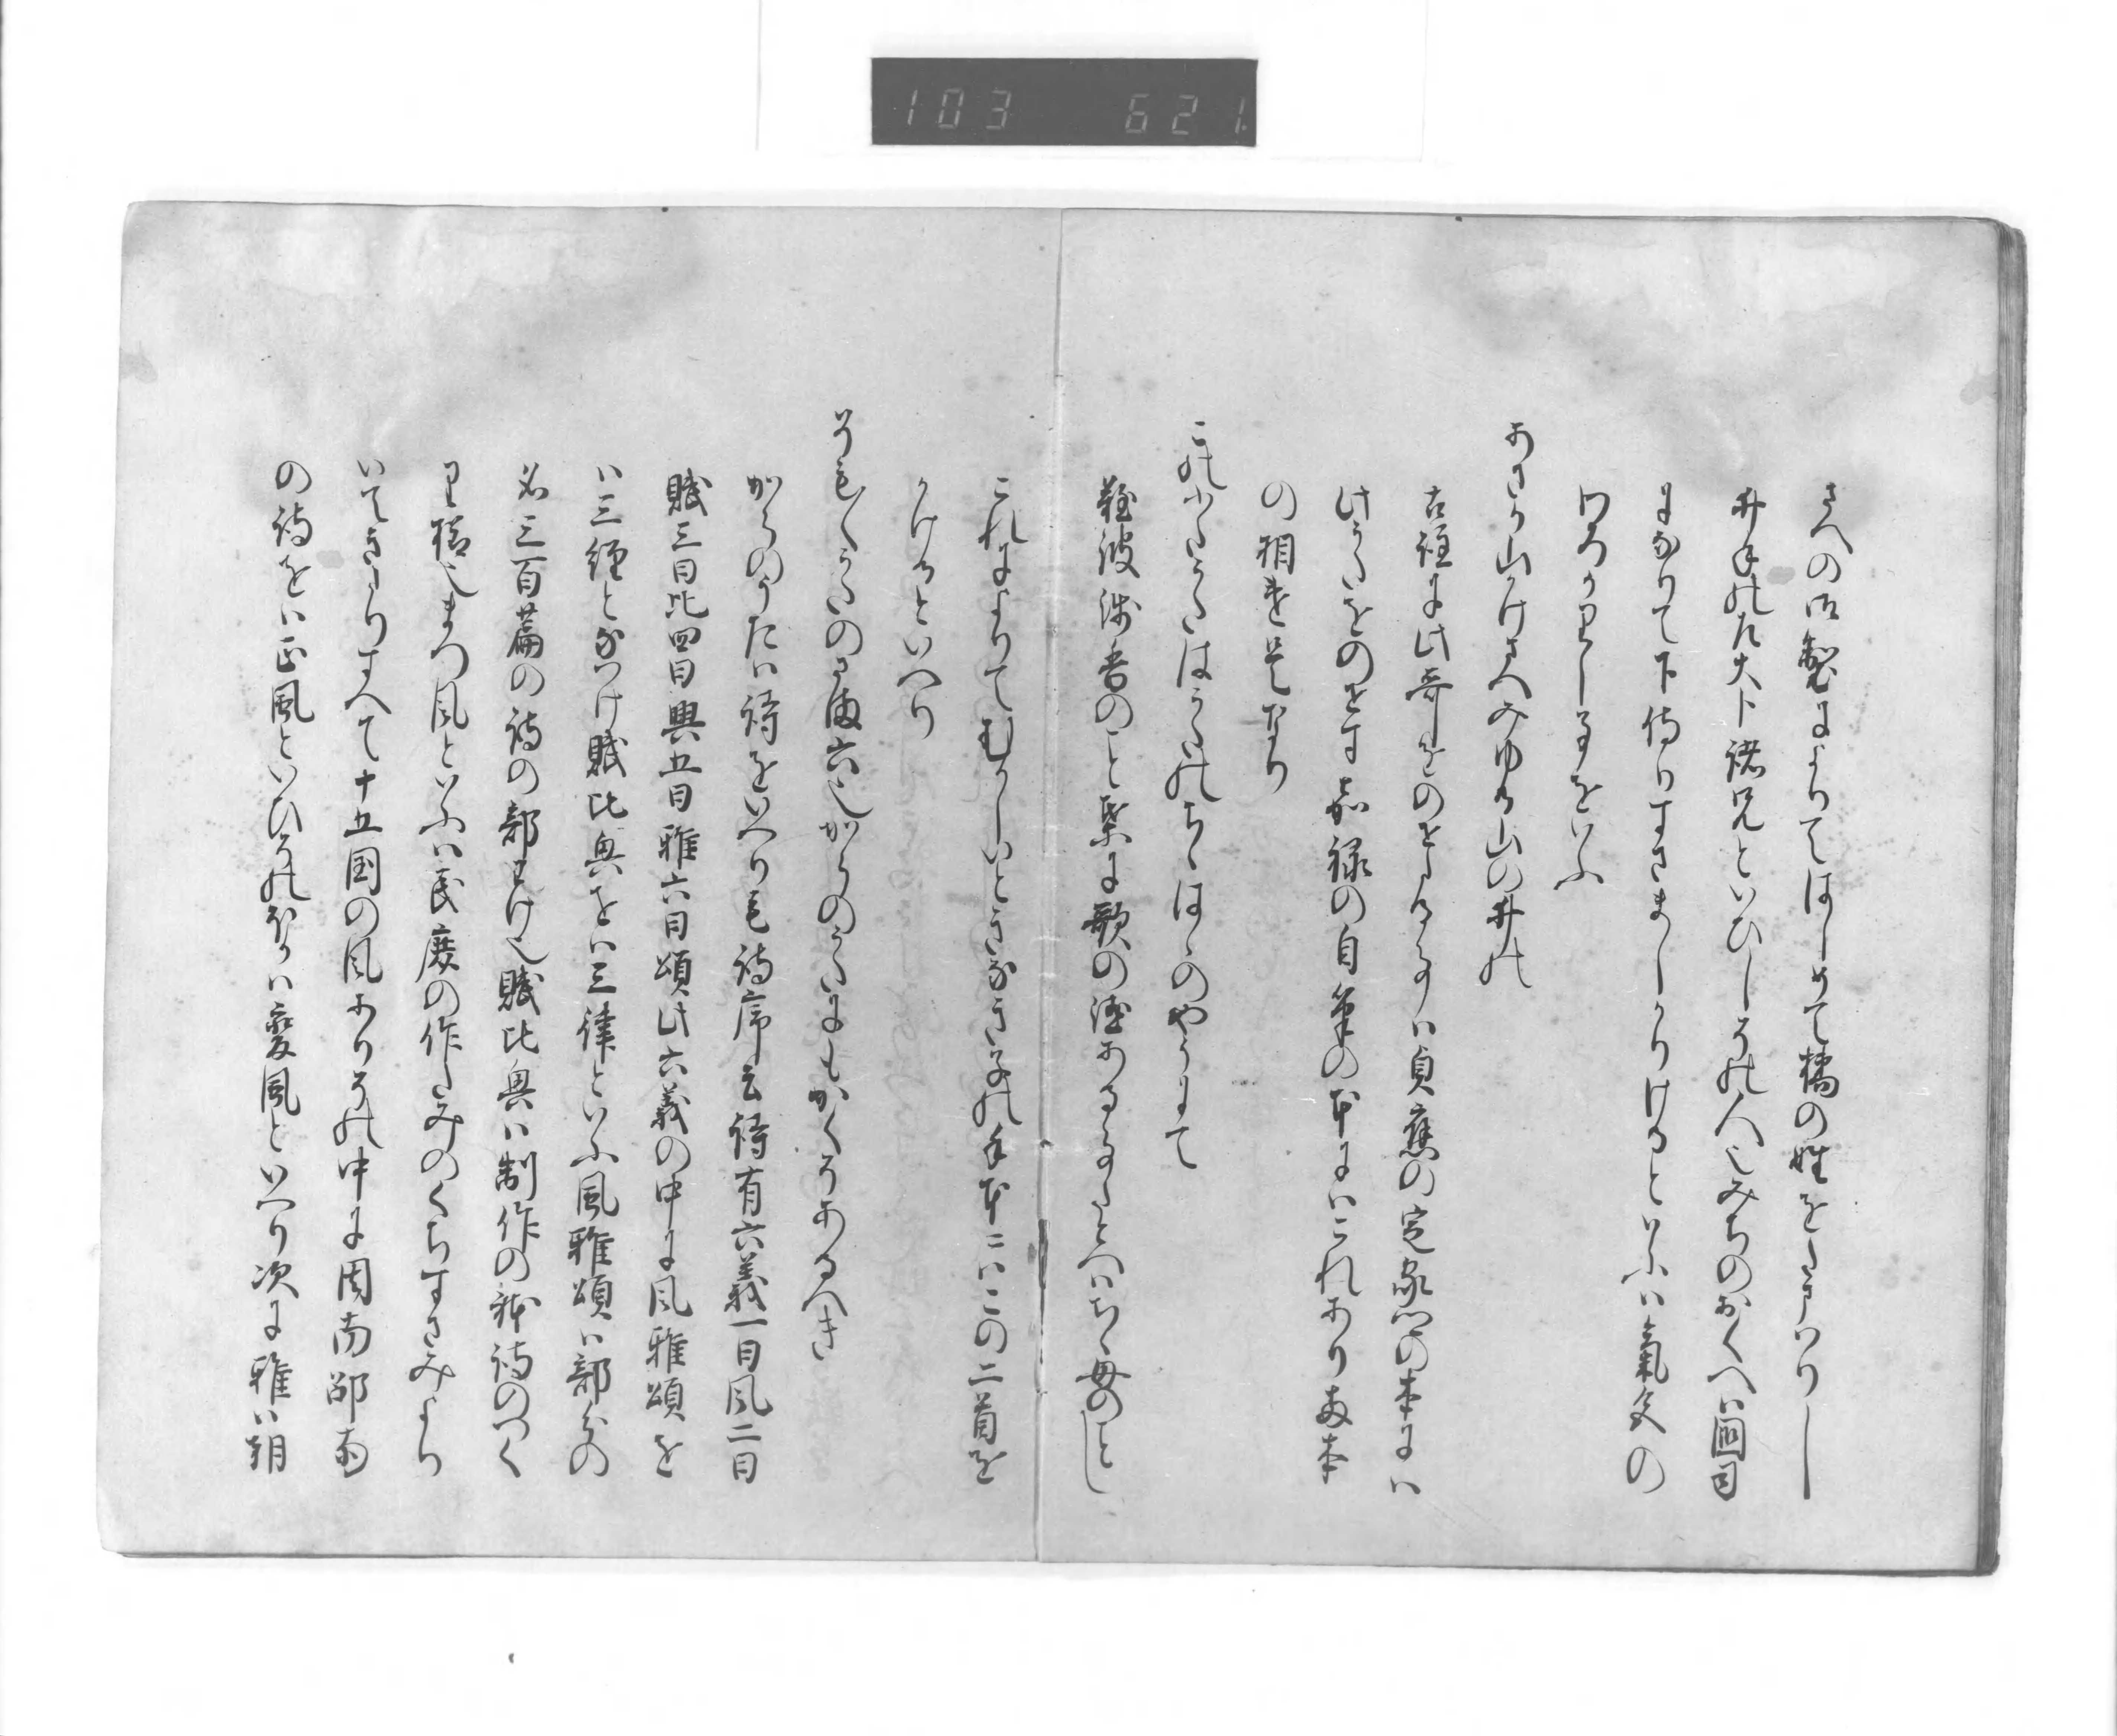 103 621
さへの御製によりてはしめて橘の姓をたまはりし
井手の左大卜諸兄といひしその人也みちのおくへは国司
になりて下侍りすさましかりけるといふは氣色の
わろかりし事をいふ
あさか山かけさへみゆる山の井の
古注に此哥をのせたる事は貞應の定家の本には
此うたをのせす嘉禄の自筆の本にはこれあり両本
の相違是なり
このふたうたはうたのちゝはゝのやうにて
難波津者のこと葉に歌の注あるゝ事たとへはちゝ母のことし
これによりてむかしいときなきものゝ手本にはこの二首を
かけるといへり
そも〳〵うたのさま六也からのうたにもかくそあるへき
からのうたは詩をいへり毛詩序云詩有六義一曰風二曰
賦三曰比四曰興五曰雅六曰頌此六義の中に風雅頌を
は三經となつけ賦比興をは三緯といふ風雅頌は部分の
名三百篇の詩の部わけ也賦比興は制作の躰詩のつく
り様也まつ風といふは民庶の作たみのくちすさみより
いてきたりすへて十五国の風ありその中に周南邵南
の詩をは正風といひそのほかは変風といへり次に雅は朝